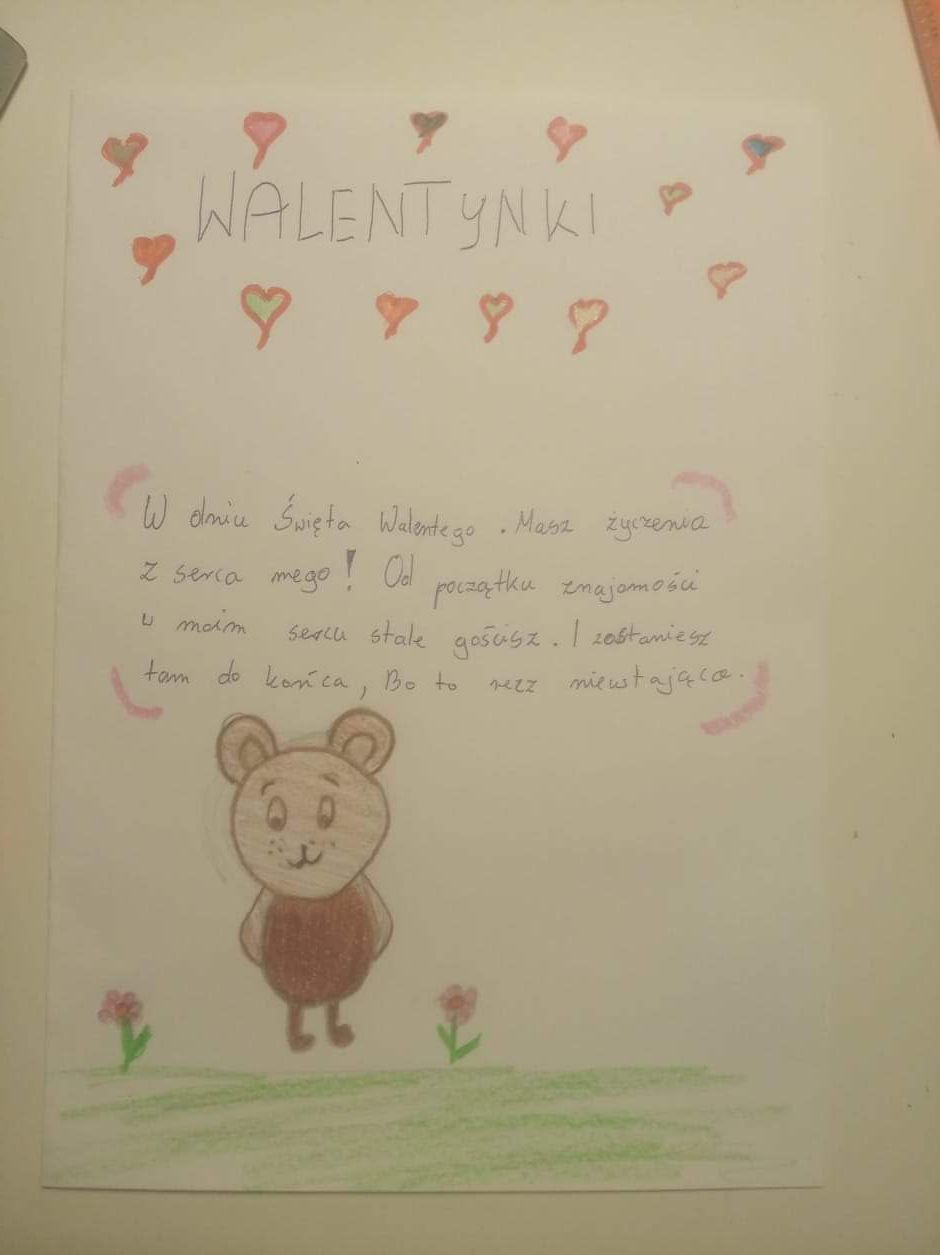 WALENTYNKI
W dniu Święta Walentego. Masz życzenia
z serca mego! Od początku znajomości
w moim sercu stale gościsz. I zostaniesz
tam do końca, Bo to rzecz nieustająca.